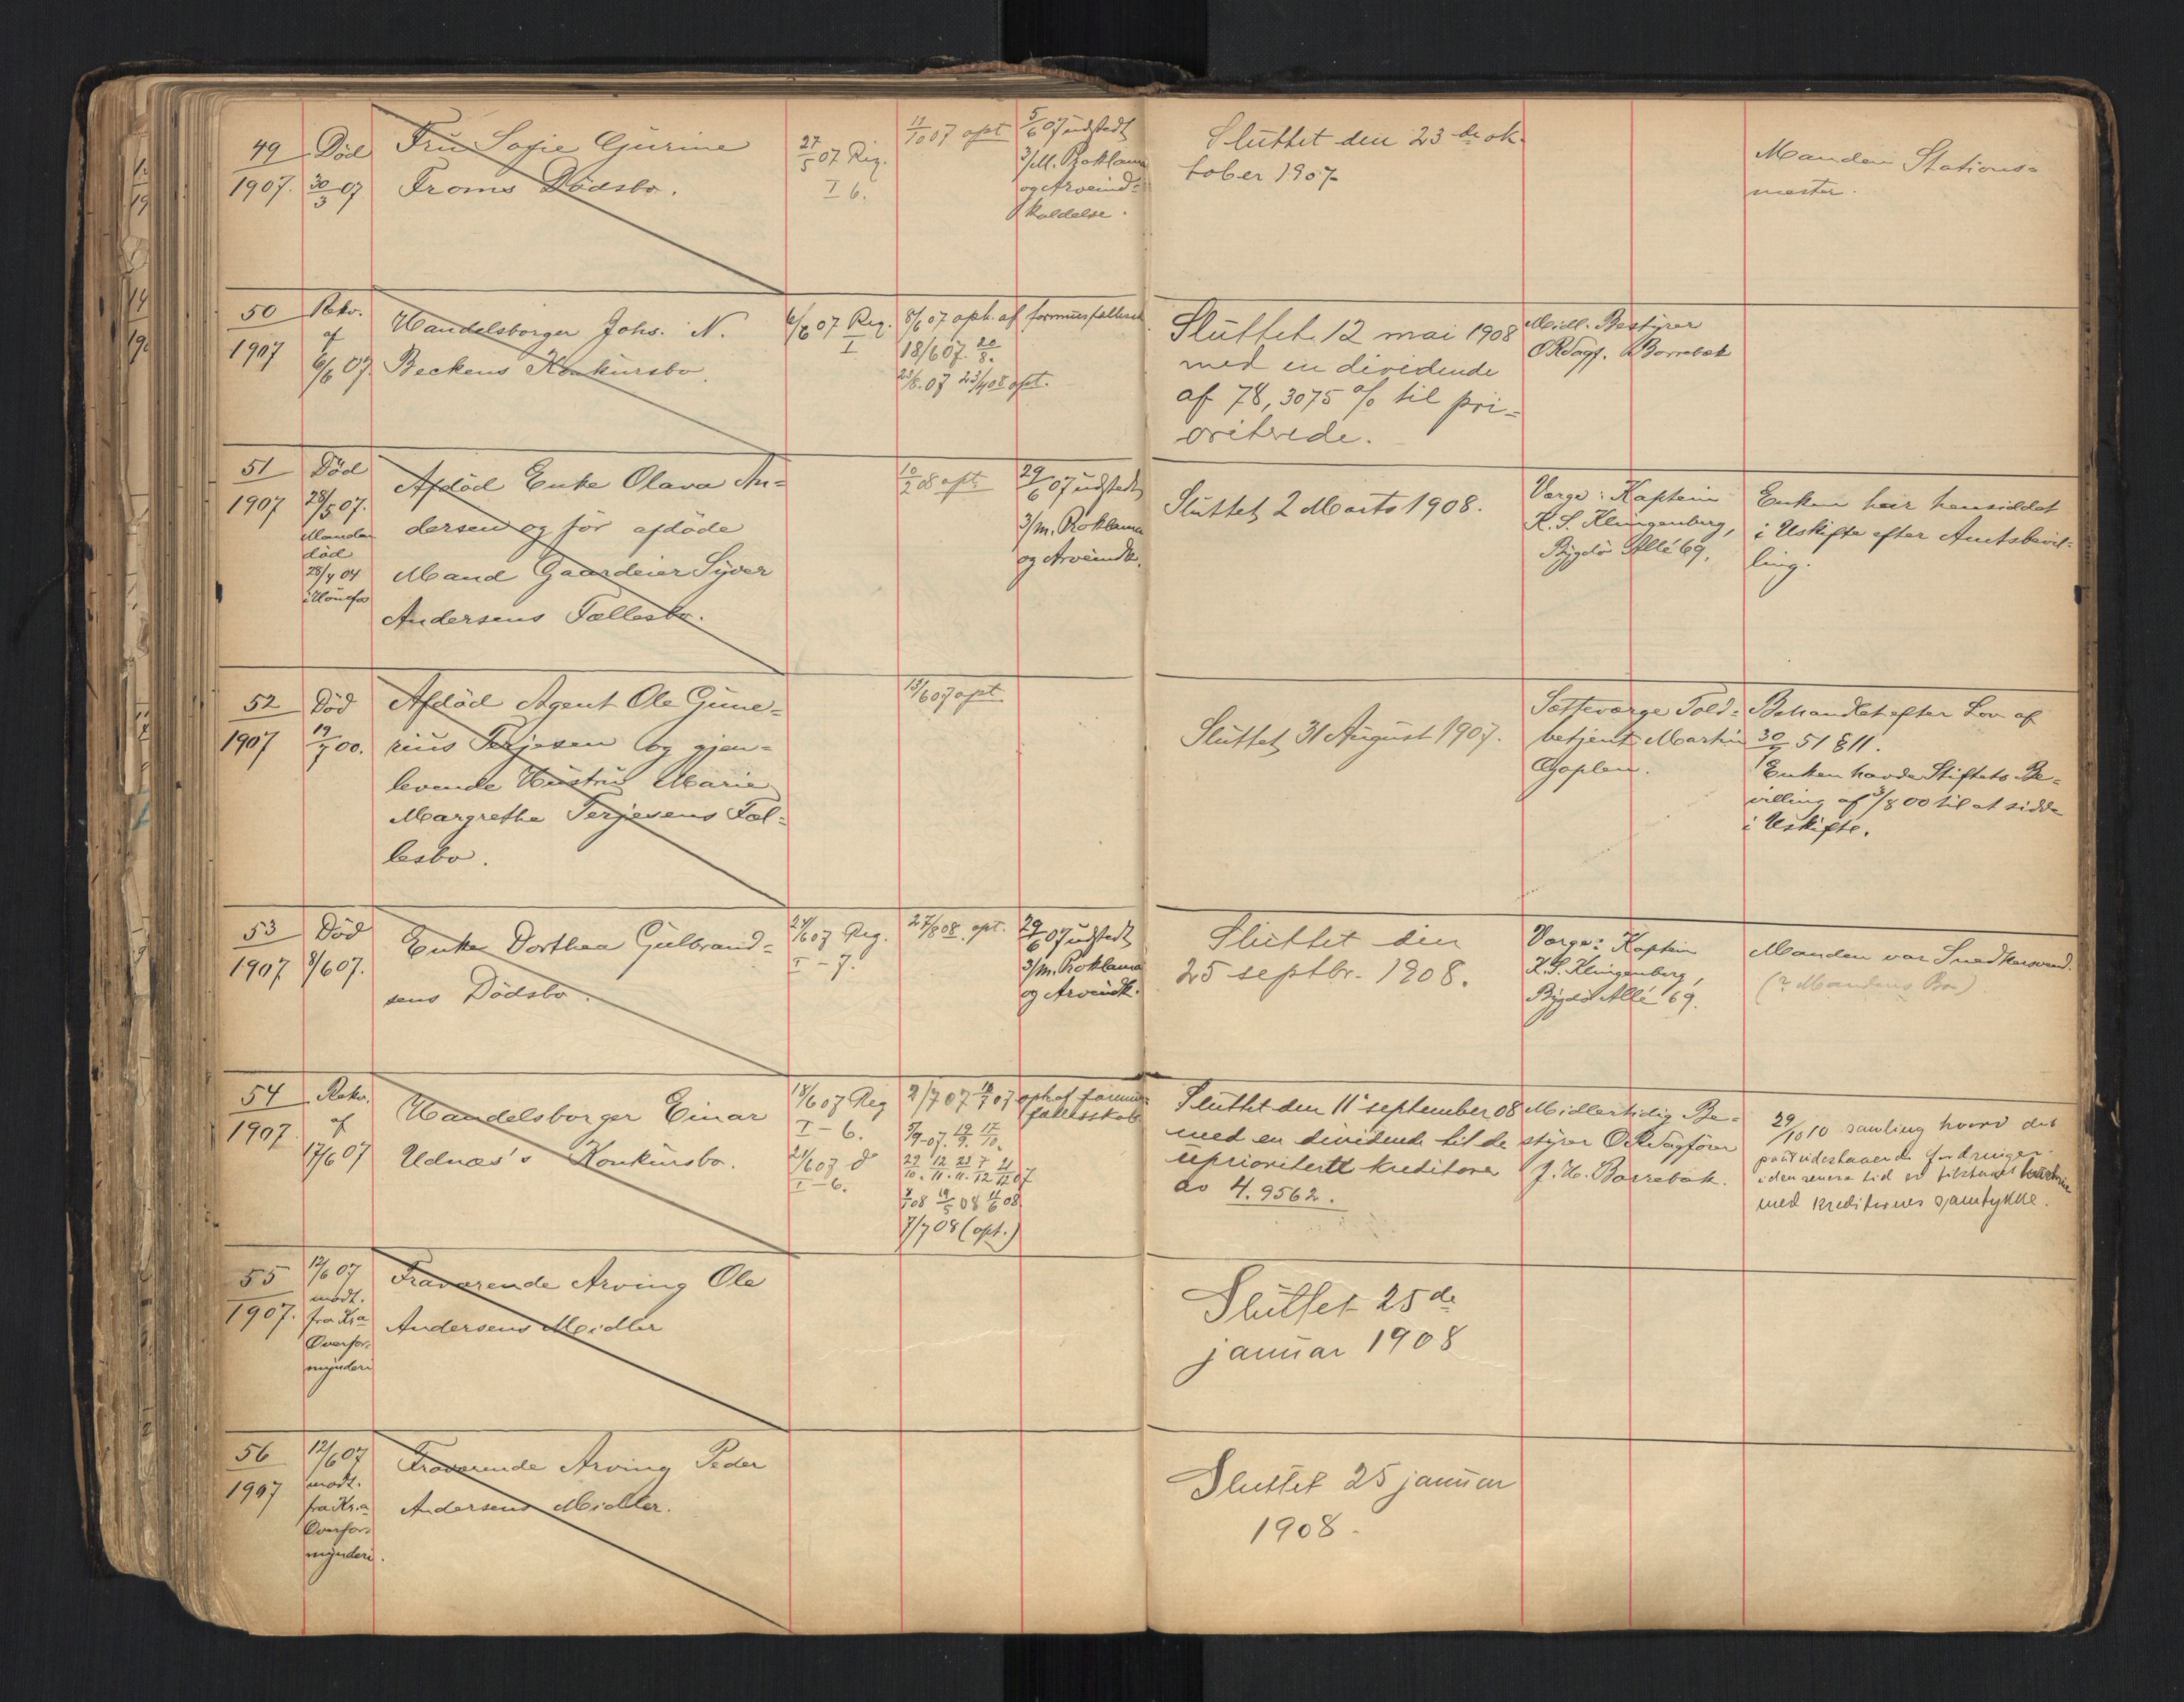 49
1907.
Død
30/3 07
Fru Sofie Gurine
Froms Dødsbo.
27/5 07 Reg.
I 6.
11/10 07 opt
5/6 07 udstedt
3/M. Proklama
og Arveind-
kaldelse.
Sluttet den 23de ok-
tober 1907
Manden Stations-
mester.
50
1907
Rekv.
af
6/6 07
Handelsborger Johs. N.
Beckens Konkursbo.
6/6 07 Reg.
I
8/6 07 oph. af formuesfællessk
18/6 07. 20/8.
23/8.07 23/4 08 opt.
Sluttet 12 mai 1908
med en dividende
af 78,3075 % til pri-
oriterede.
Midl. Bestyrer
ORsagf. Borrebæk
51
1907
Død
28/5 07.
Manden
død
28/4 04
i Hønefos
Afdød Enke Olava An-
dersen og før afdøde
Mand Gaardeier Syver
Andersens Fællesbo.
10/2 08 opt.
29/6 07 udstedt
3/m. Proklama
og Arveindk.
Sluttet 2 Marts 1908.
Verge: Kaptein
K. S. Klingenberg,
Bygdø Allé 69.
Enken har hensiddet
i Uskifte efter Amtsbevil-
ling.
52
1907
Død
19/7 00.
Afdød Agent Ole Gune-
rius Terjesen og gjen-
levende Hustru Marie
Margrethe Terjesens Fæl-
lesbo.
13/6 07 opt.
Sluttet 31 August 1907.
Setteverge Told-
betjent Martin
Goplen.
Behandlet efter Lov af
30/7 51 § 11.
Enken havde Stiftets Be-
villing af 3/8 00 til at sidde
i Uskifte.
53
1907
Død
8/6 07.
Enke Dorthea Gulbrand-
sens Dødsbo.
24/6 07 Reg.
I - 7.
27/8 08. opt.
29/6 07 udstedt
3/m. Proklama
og Arveindk.
Sluttet den
25 septbr. 1908.
Verge: Kaptein
K. S. Klingenberg,
Bygdø Allé 69.
Manden var Snedkersvend.
(? Mandens Bo)
54
1907.
Rekv.
af
17/6 07
Handelsborger Einar
Udnæs's Konkursbo.
18/6 07 Reg
I - 6.
21/6 07 do
I - 6.
2/7 07 18/7 07 oph af formues-
fællesskab
5/9-07. 19/9. 17/10.
29/10. 12/11. 23/11. 7/12 21/12 07
8/08 19/5 08 4/6 08
7/7 08 (opt.)
Sluttet den 11 september 08
med en dividende til de
uprioriterte kreditorer
av 4.9562.
Midlertidig Be-
styrer ORsagfører
J. H. Borrebæk.
29/10 10 samling hvorved det
paa utestaaende fordringer
i den senere tid er tilstaaet
med kreditorernes samtykke.
55
1907.
12/6 07
modt.
fra Kr.a
Overfor-
mynderi
Fraværende Arving Ole
Andersens Midler
Sluttet 25de
januar 1908
56
1907
12/6 07
modt.
fra Kr.a
Overfor-
mynderi.
Fraværende Arving Peder
Andersens Midler.
Sluttet 25 januar
1908.